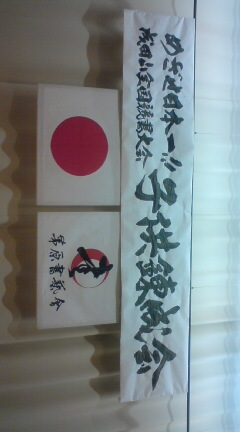 めざせ日本一!!
成田山全国競書大会
子供錬成会
茅原書藝會